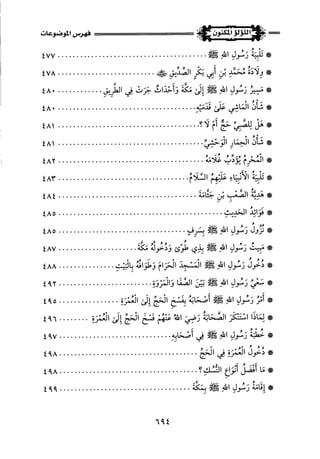 اللؤلؤ المكنون فهرس الموضوعات
* تَلْبِيَةُ رَسُولِ اللهِ ﷺ ٤٧٧
* وِلَادَةُ مُحَمَّدِ بْنِ أَبِي بَكْرٍ الصِّدِّيقِ ﷺ ٤٧٨
* مَسِيرُ رَسُولِ اللهِ ﷺ إِلَى مَكَّةَ وَأَحْدَاثٌ جَرَتْ فِي الطَّرِيقِ ٤٨٠
* شَأْنُ الْمَاشِي عَلَى قَدَمَيْهِ ٤٨٠
* هَلْ لِلصَّبِيِّ حَجٌّ أَمْ لَا؟ ٤٨١
* شَأْنُ الْحِمَارِ الْوَحْشِيِّ ٤٨١
* الْمُحْرِمُ يُؤَدِّبُ غُلَامَهُ ٤٨٢
* تَلْبِيَةُ الْأَنْبِيَاءِ عَلَيْهِمُ السَّلَامُ ٤٨٣
* هَدِيَّةُ الصَّعْبِ بْنِ جَثَّامَةَ ٤٨٤
* فَوَائِدُ الْحَدِيثِ ٤٨٥
* نُزُولُ رَسُولِ اللهِ ﷺ بِسَرِفٍ ٤٨٥
* مَبِيتُ رَسُولِ اللهِ ﷺ بِذِي طُوًى وَدُخُولُهُ مَكَّةَ ٤٨٧
* دُخُولُ رَسُولِ اللهِ ﷺ الْمَسْجِدَ الْحَرَامَ وَطَوَافُهُ بِالْبَيْتِ ٤٨٨
* سَعْيُ رَسُولِ اللهِ ﷺ بَيْنَ الصَّفَا وَالْمَرْوَةِ ٤٩٢
* أَمْرُ رَسُولِ اللهِ ﷺ أَصْحَابَهُ بِفَسْخِ الْحَجِّ إِلَى الْعُمْرَةِ ٤٩٥
* لِمَاذَا اسْتَنْكَرَ الصَّحَابَةُ رَضِيَ اللهُ عَنْهُمْ فَسْخَ الْحَجِّ إِلَى الْعُمْرَةِ ٤٩٦
* خُطْبَةُ رَسُولِ اللهِ ﷺ فِي أَصْحَابِهِ ٤٩٧
* دُخُولُ الْعُمْرَةِ فِي الْحَجِّ ٤٩٨
* مَا أَفْضَلُ أَنْوَاعِ النُّسُكِ؟ ٤٩٨
* إِقَامَةُ رَسُولِ اللهِ ﷺ بِمَكَّةَ ٤٩٩
٦٩٤